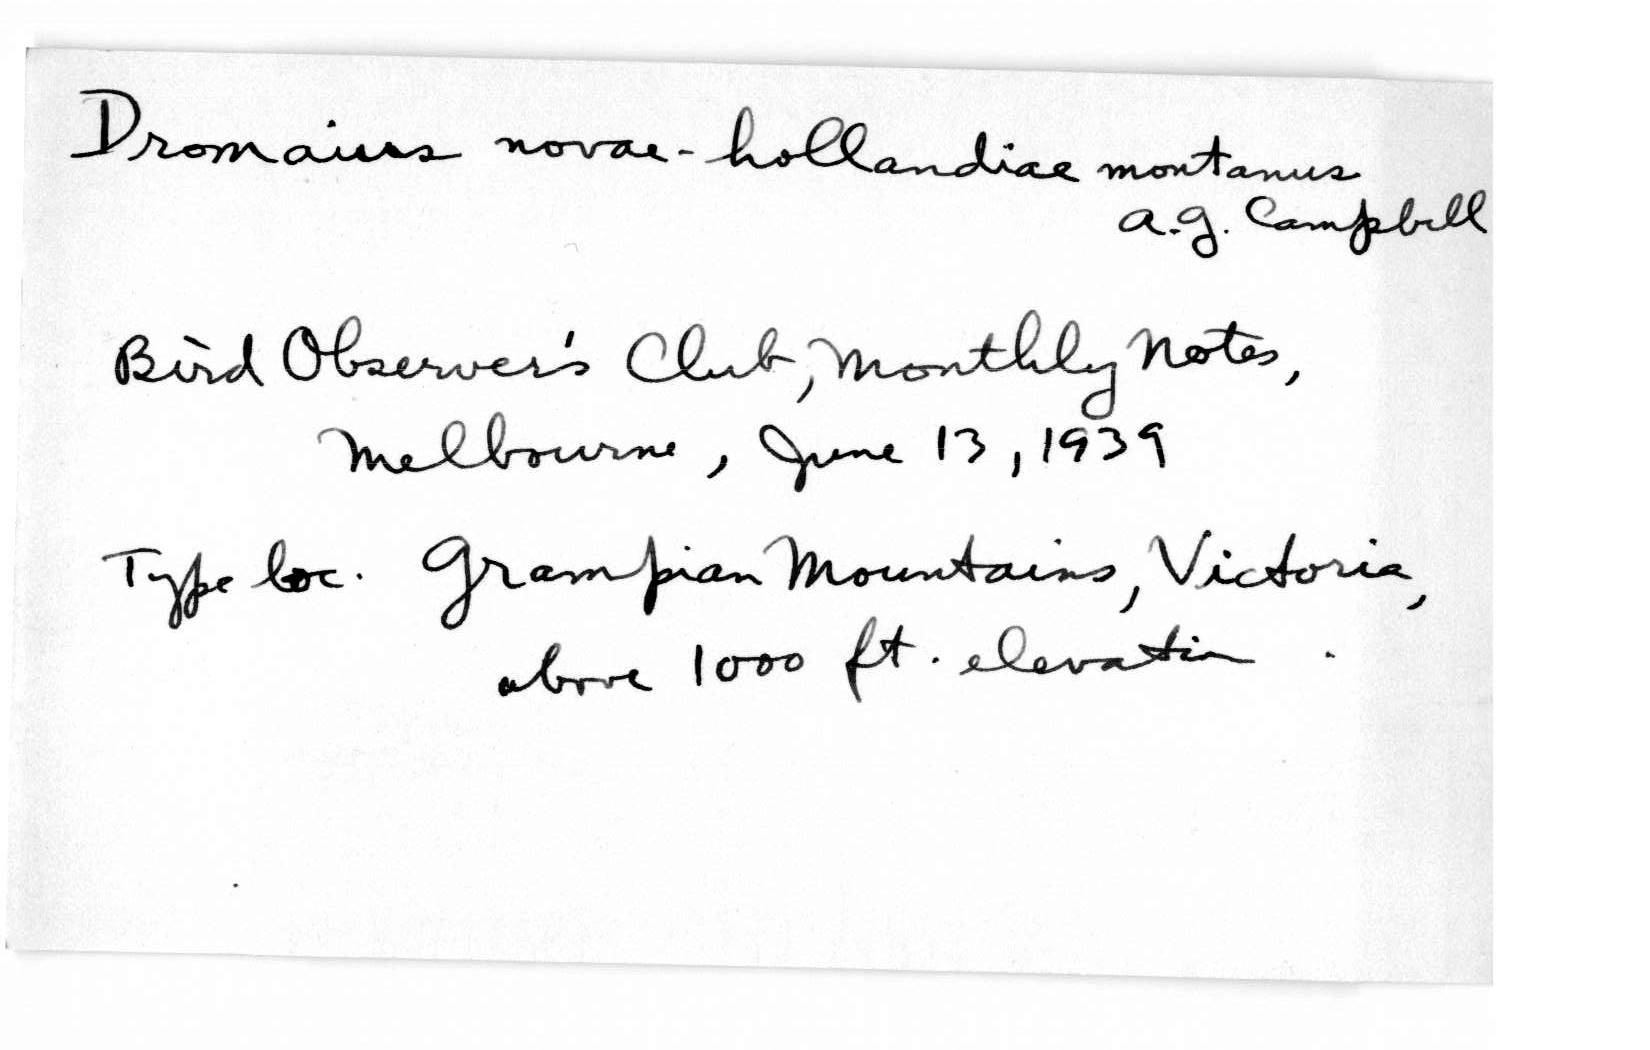 Dromaius novae-hollandiae montanus
A.G. Campbell
Bird Observer's Club, Monthly Notes,
Melbourne, June 13, 1939
Type loc. Grampian Mountains, Victoria,
above 1000 ft. elevation.